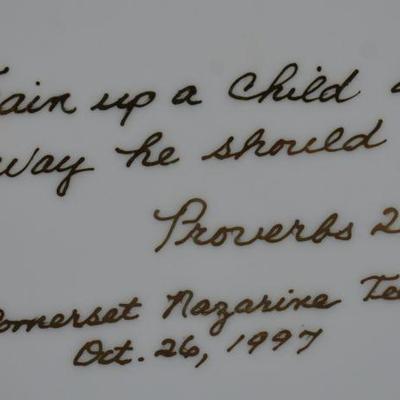 rain up a child
way he should
Proverbs 2
omerset Nazarine Te
Oct. 26, 1997